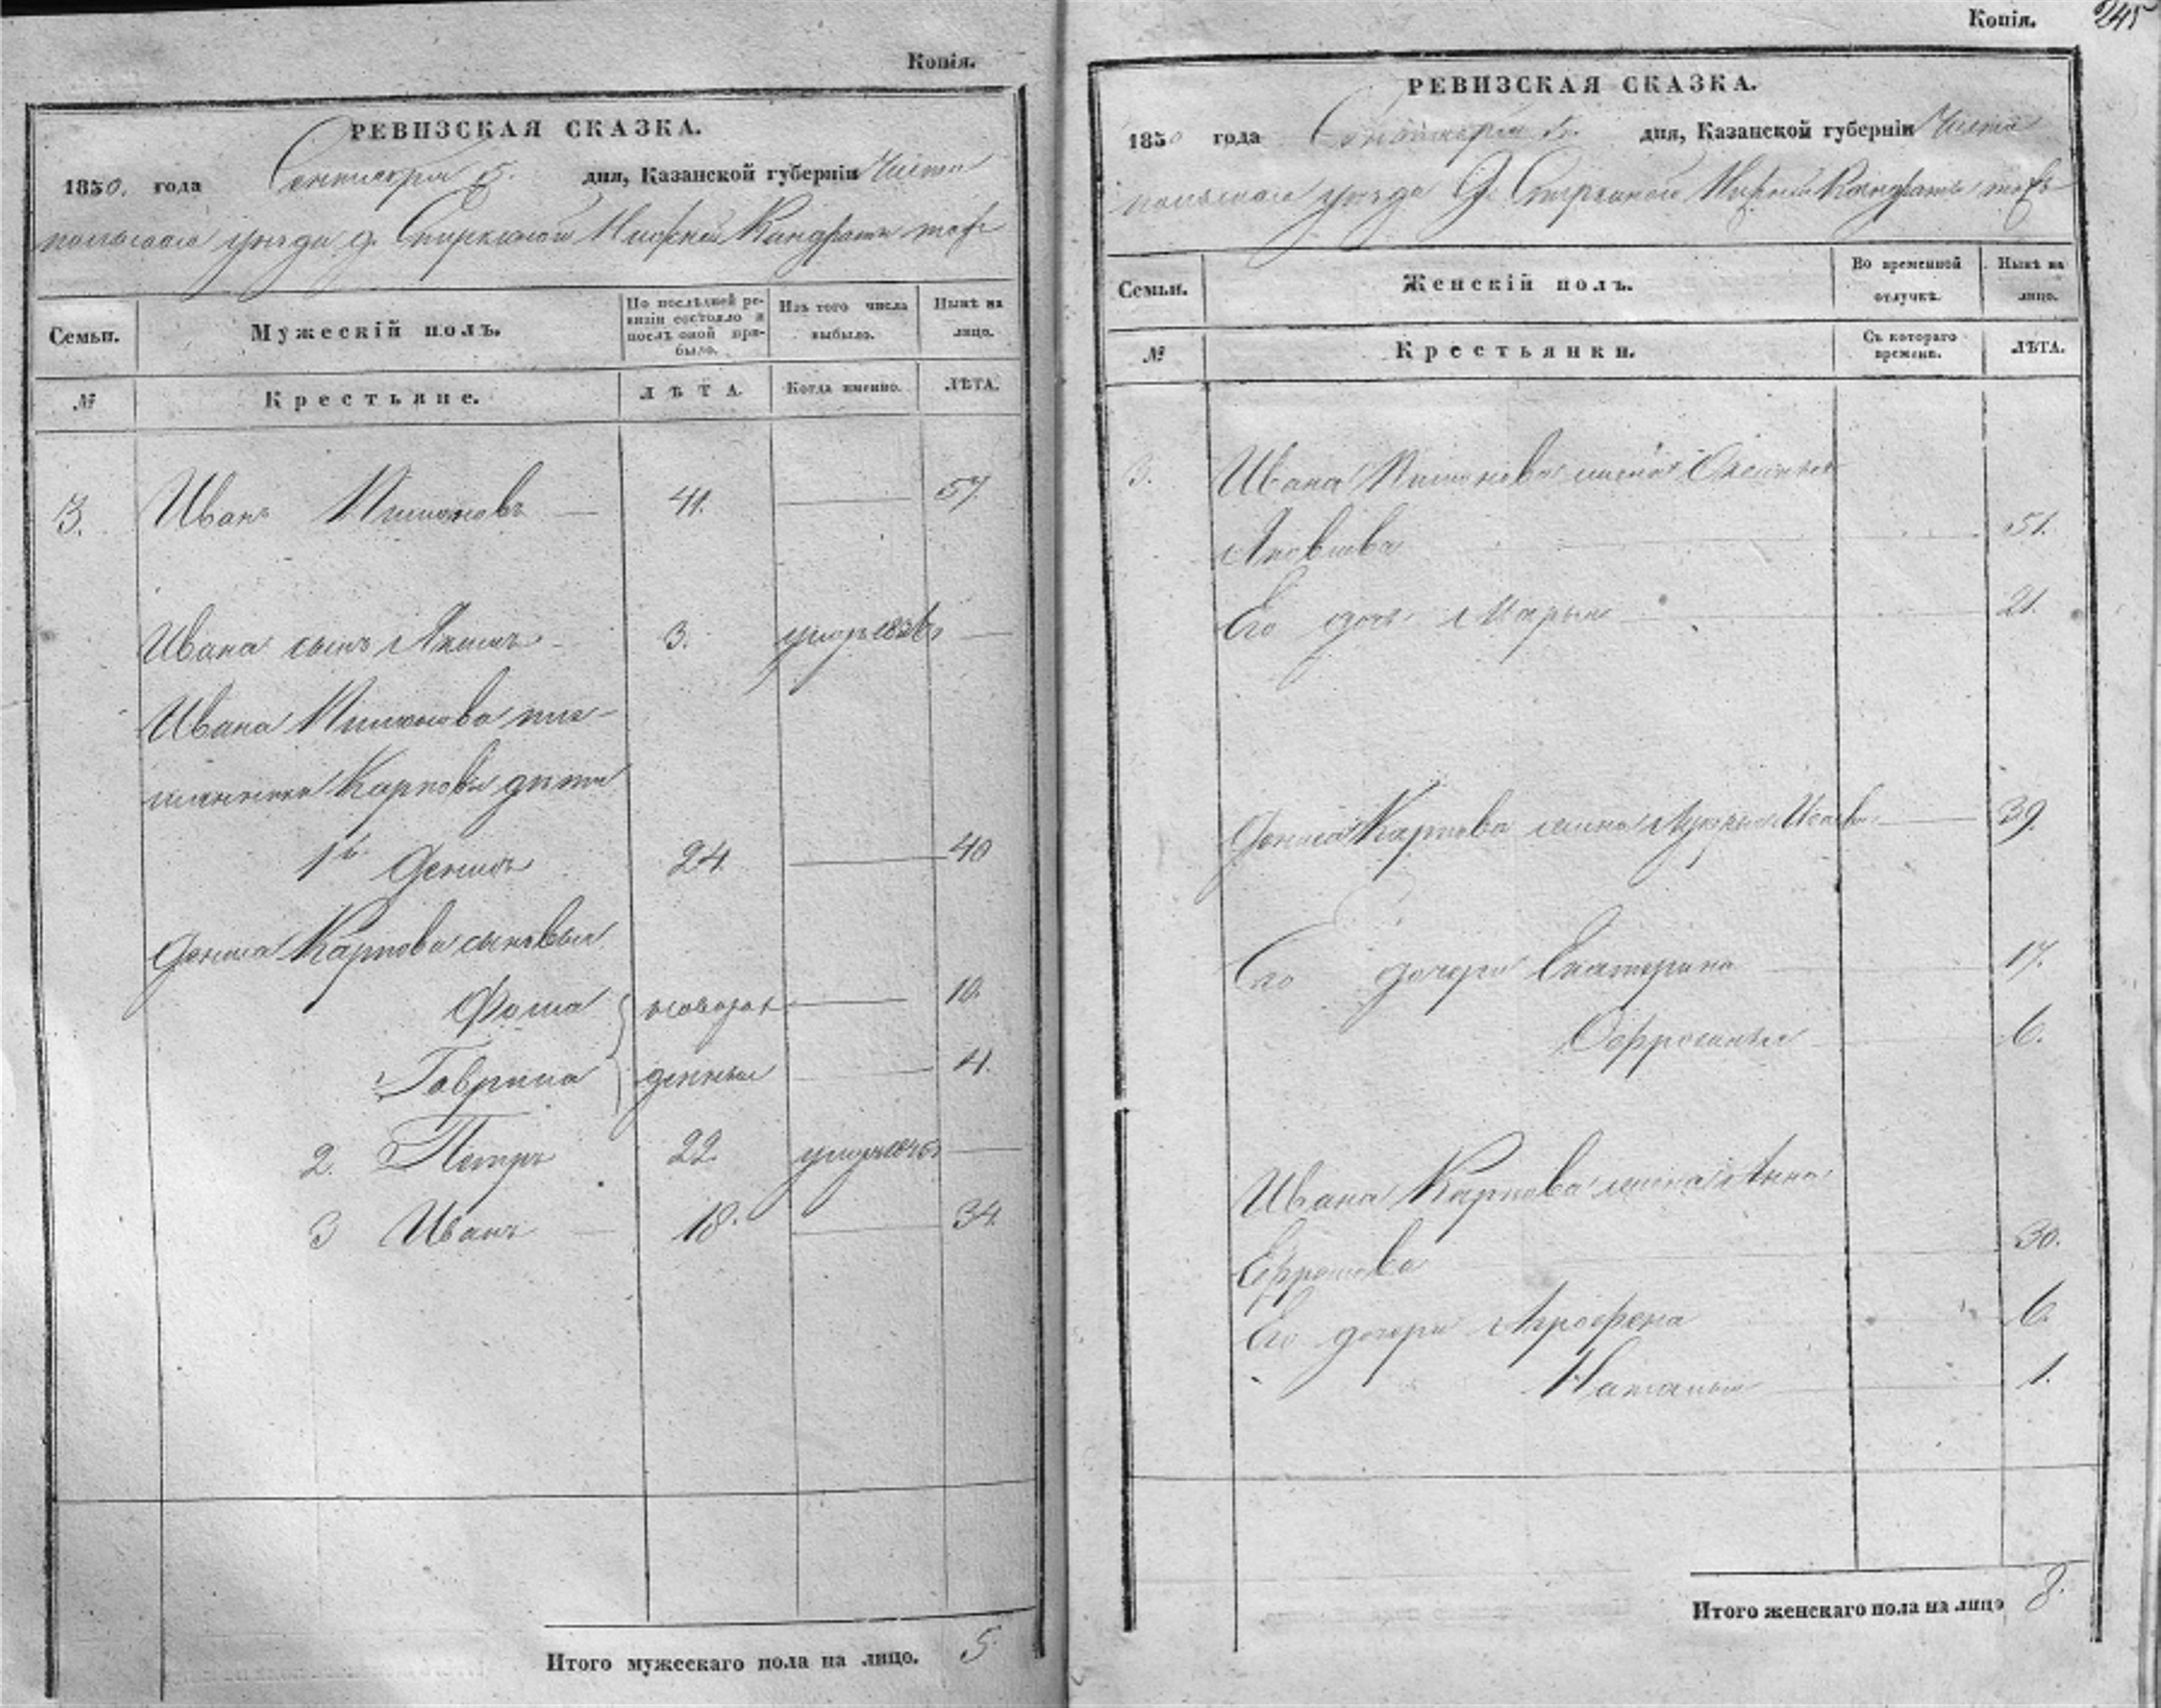 Копія.
РЕВИЗСКАЯ СКАЗКА.
1850. года Сентября 5. дня, Казанской губерніи Чисто
польскаго уѣзда д.
Семьи.
Мужескій полъ.
По послѣдней ре-
визіи состояло и
послѣ оной при-
было.
Изъ того числа
выбыло.
Нынѣ на
лицо.
№
Крестьяне.
ЛѢТА.
Когда именно.
ЛѢТА.
3. Иванъ Пимоновъ 41. 57
Ивана сынъ Якимъ 3.
Ивана Пимонова пле-
мянника Карповы дѣти
1й Денисъ 24. 40
Дениса Карпова сыновья
Фома новорож 10.
Гаврила денные 4.
2. Петръ 22.
3 Иванъ 18. 34.
Итого мужескаго пола на лицо. 5.
Копія. 245
РЕВИЗСКАЯ СКАЗКА.
1850 года Сентября 5. дня, Казанской губерніи Чисто
польскаго уѣзда Д.
Семьи.
Женскій полъ.
Во временной
отлучкѣ.
Нынѣ на
лицо.
№
Крестьянки.
Съ котораго
времени.
ЛѢТА.
3. Ивана Пимонова жена
Яковлева 51.
Его дочь Марья 21.
Дениса Карпова жена 39.
Его дочери Екатерина 17.
6.
Ивана Карпова жена Анна
30.
Его дочери Агрофена 6.
Наталья 1.
Итого женскаго пола на лицо 8.